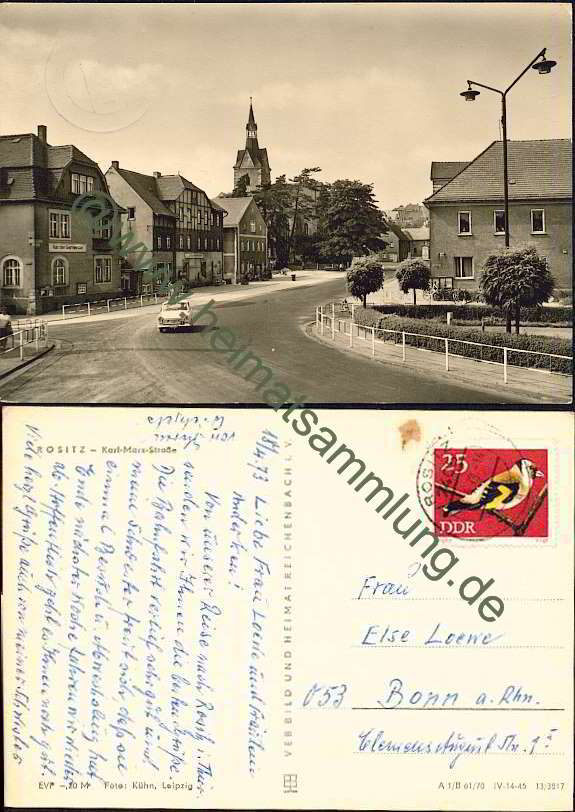 www.heimatsammlung.de
ROSITZ – Karl-Marx-Straße
18.4.73 Liebe Frau Loewe und Fräulein
Von unserer Reise nach Rositz i. Thür.
senden wir Ihnen die besten Grüße.
Die Bahnfahrt verlief sehr gut und
meine Schwester freut sich, daß sie
einmal Besuch u. Abwechslung hat
Ende nächster Woche fahren wir wieder
ab. Hoffentlich geht es Ihnen noch gut.
Viele herzl. Grüße auch von meiner Schwester
von Ihrem
VEB BILD UND HEIMAT REICHENBACH I. V.
ROSITZ
25
DDR
Frau
Else Loewe
053 Bonn a. Rhn.
Clemens August Str.
EVP –,20 M Foto: Kühn, Leipzig
A 1/B 61/70 IV-14-45 13/3017